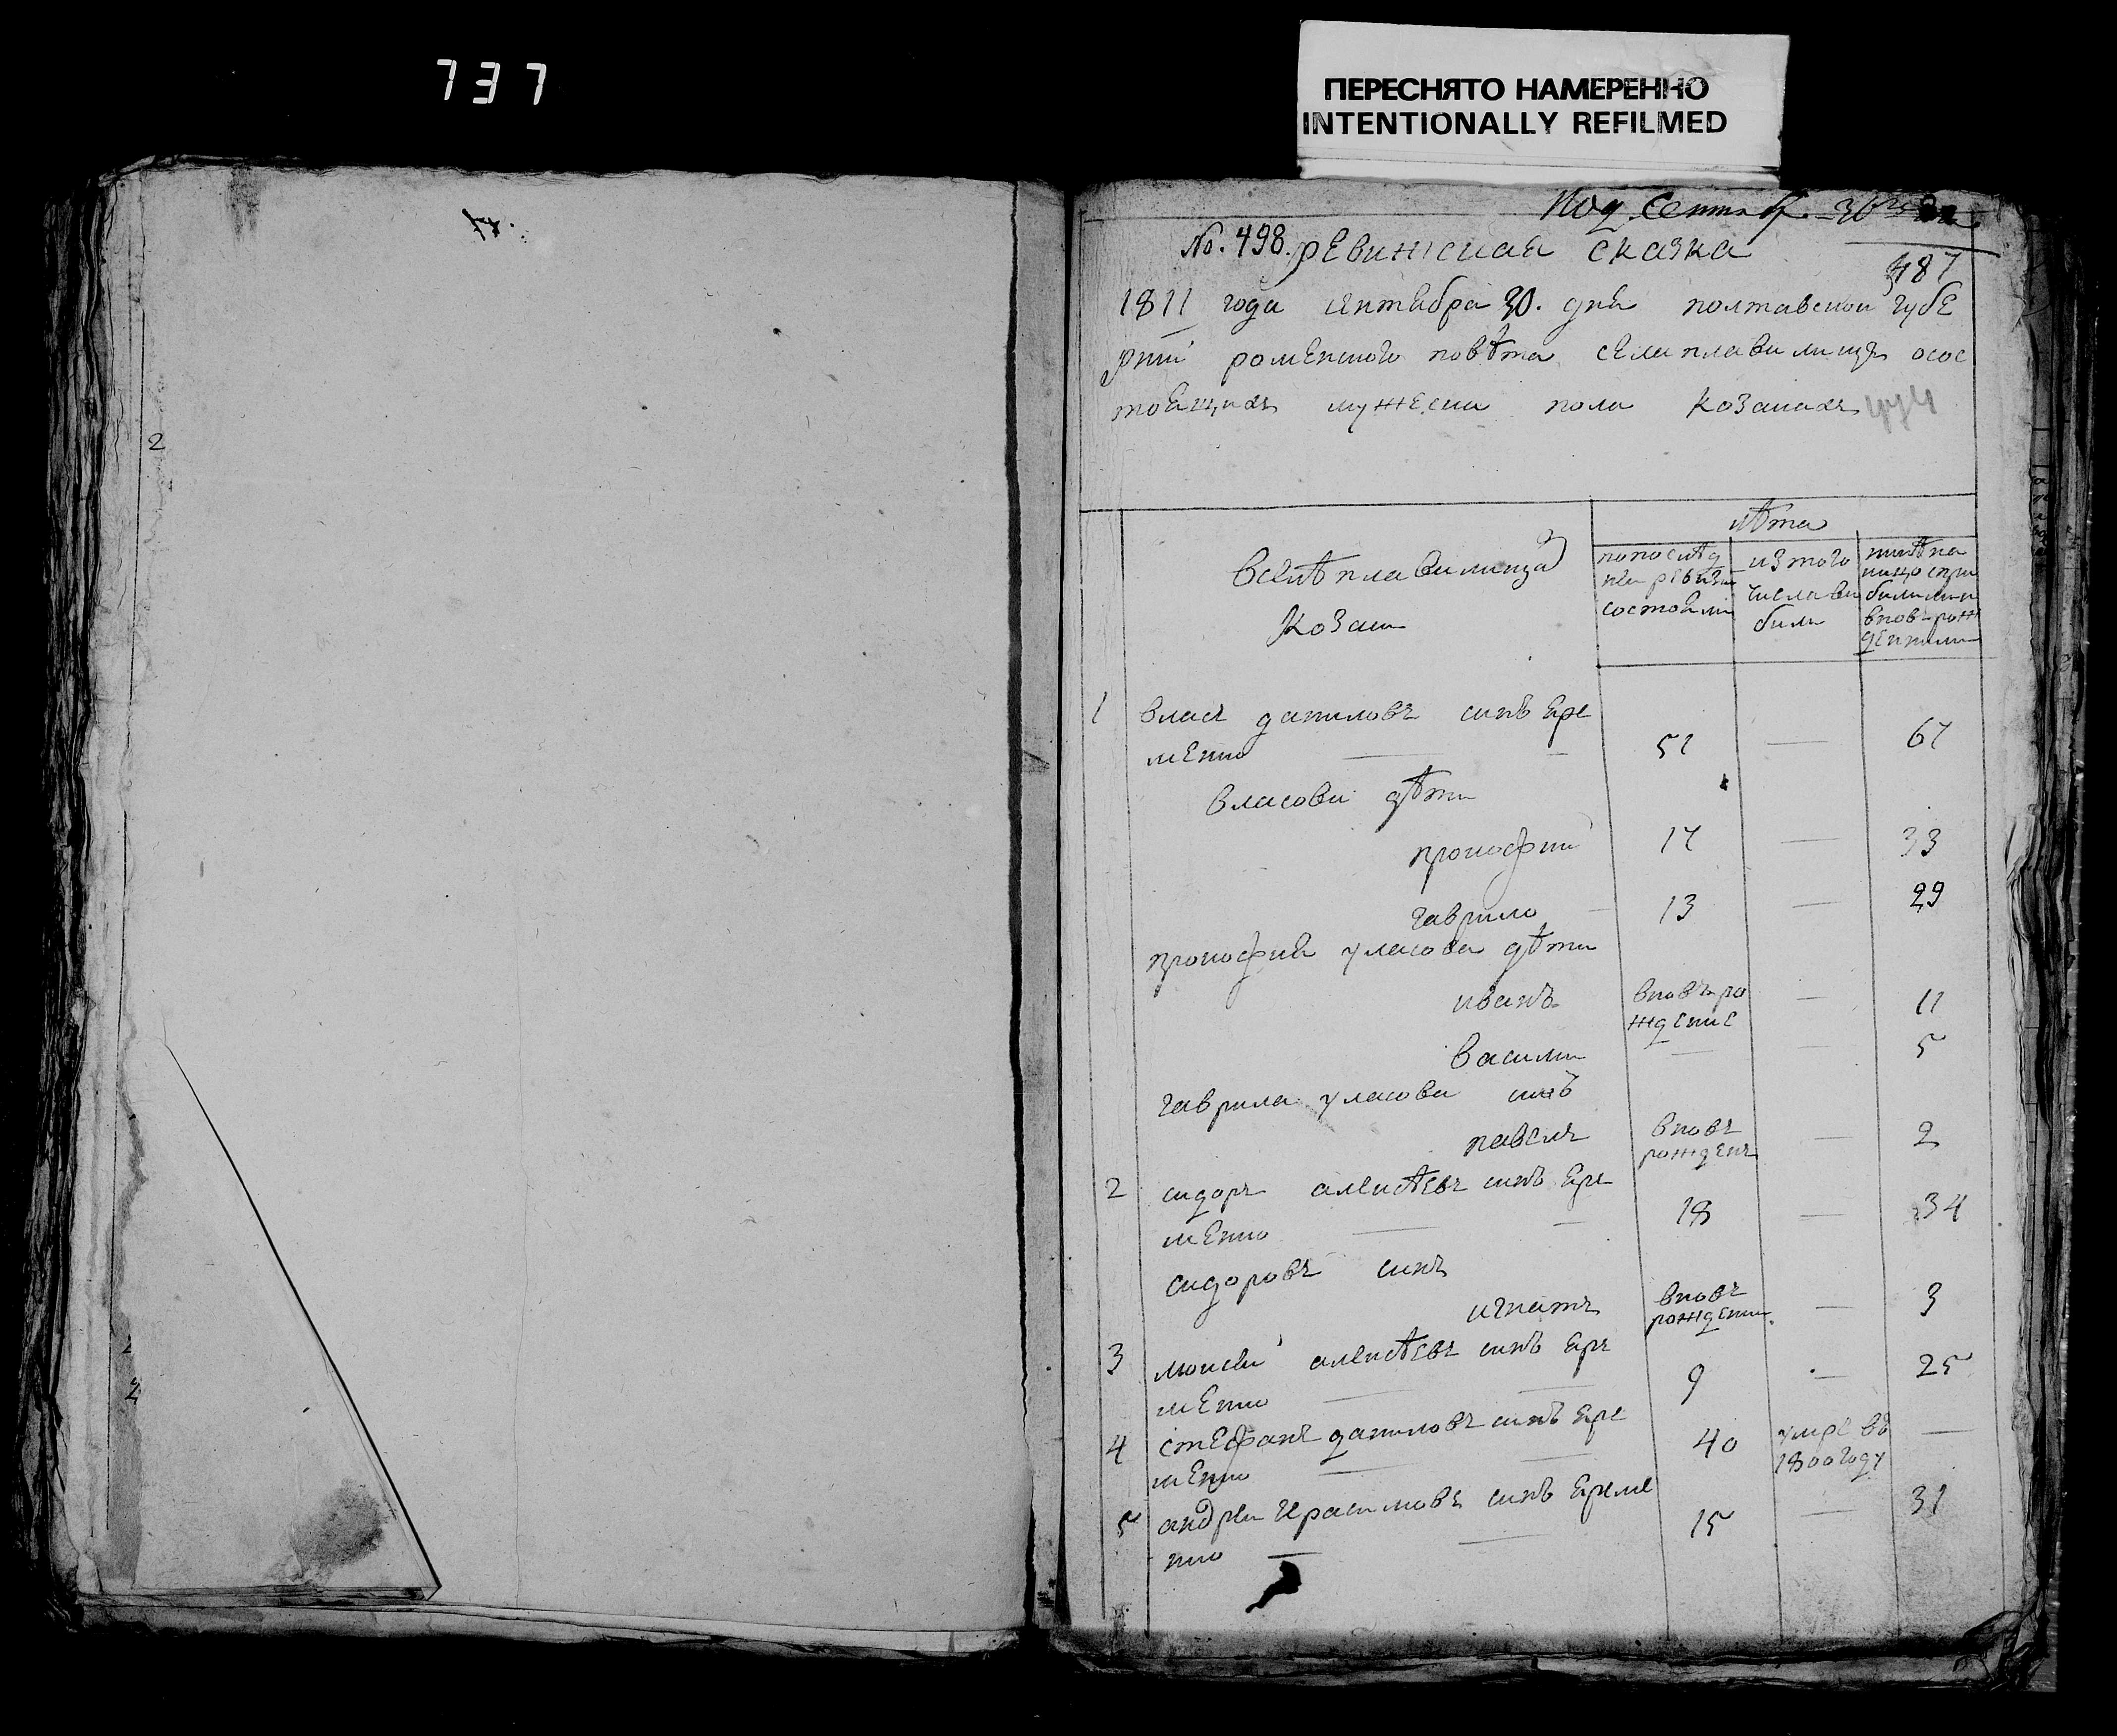 737
ПЕРЕСНЯТО НАМЕРЕННО
INTENTIONALLY REFILMED
2
2
Под. Сентяб. 30го
№. 498. ревижская сказка
487
1811 года сентября 30. дня полтавской губе
рний роменского повѣта села плавилищъ осос
тоящихъ мужеска пола козакахъ
лѣта
вселѣ плавилища
козаки
попослѣд
ней ревизи
состояли
изтого
числа ви
били
нинѣ на
лицо спри
билими и
вновь рож
денними
1 власъ даниловъ синъ яре
менко — — 51 — 67
власови дѣти
прокофий 17 — 33
гаврило — 13 — 29
прокофия уласова дѣти
иванъ вновь ро
ждение — 11
василий — — 5
гаврила уласова синъ
павелъ вновъ
рожденъ — 2
2 сидоръ алексѣевъ синъ яре
менко — — 18 — 34
сидоровъ синъ
игнатъ вновъ
рождени. — 3
3 моисей алексѣевъ синъ яре
менко — — 9 — 25
4 стефанъ даниловъ синъ яре
менко — — 40 умре въ
1800 году —
5 андрей герасимовъ синъ яреме
нко — — 15 — 31